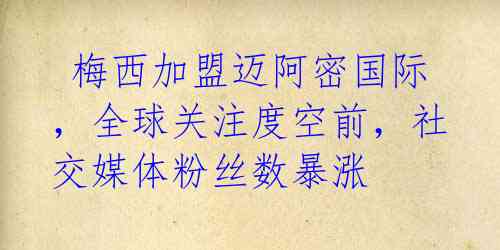 梅西加盟迈阿密国际
，全球关注度空前，社
交媒体粉丝数暴涨